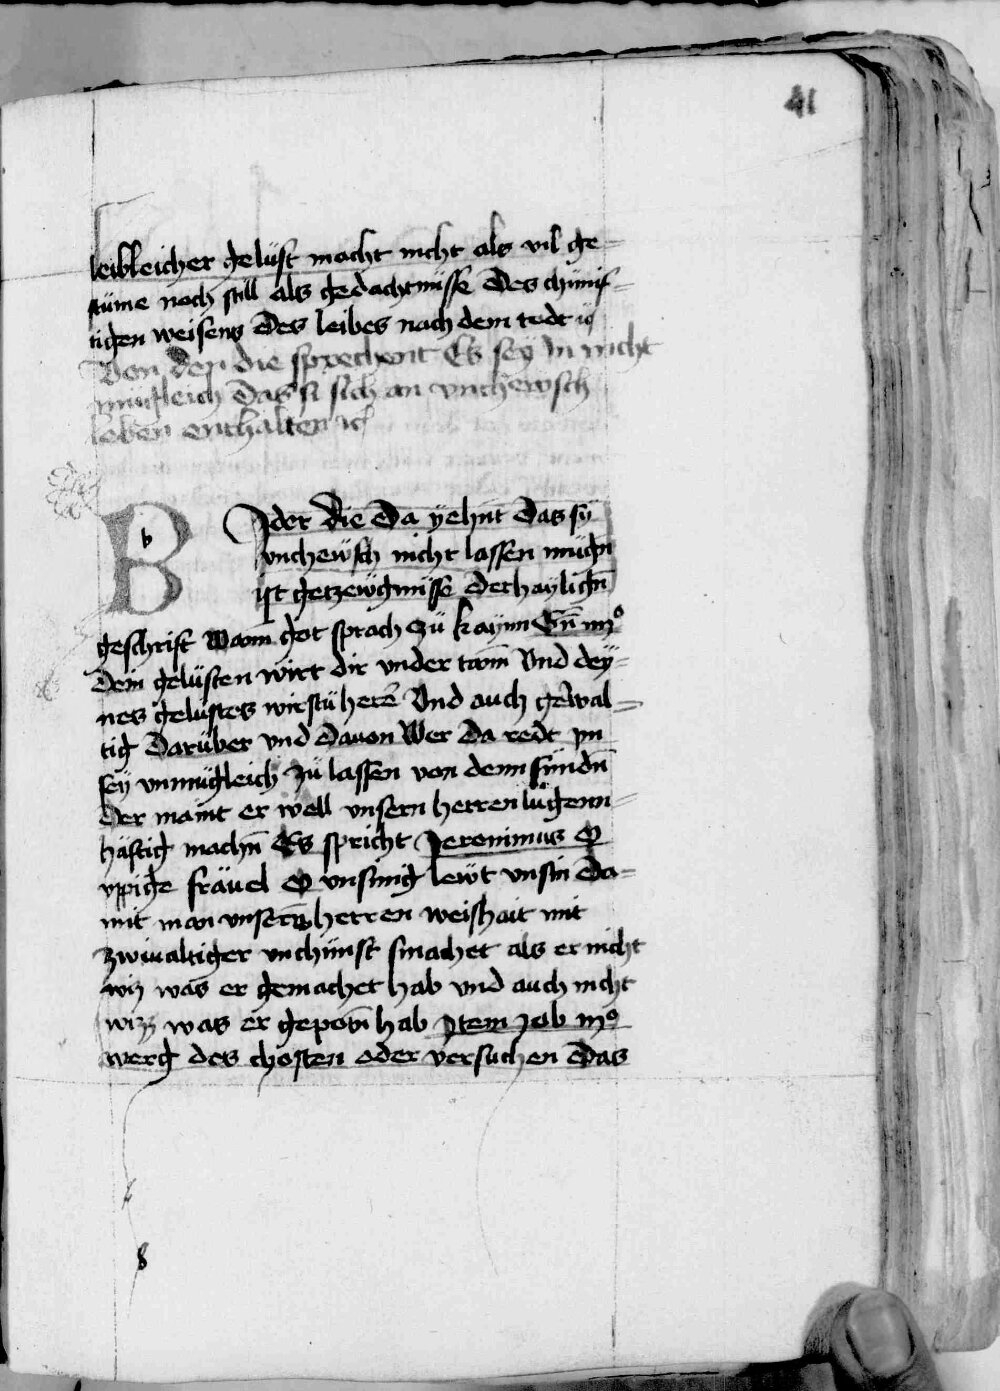 41
leibleicher gelüst macht nicht als vil ge-
stüme noch still als gedachtnüsse Des chünf-
tigen weisens Des leibes nach dem tode ꝛc
Von den die sprechent Es sey In nicht
mugleich Das si sich an vnchewsch
leben enthalten ꝛc
Bider die Da yehnt Das sy
vnchewsch nicht lassen mügn̄
ist getzewgnüsse Der haylign̄
geschrift Wann got sprach zu kaynn Gn̄ iiijº
Dein gelüsten wirt dir vnder tam̄ Vnd dey-
nes gelüstes wirstu herē Vnd auch gewal-
tig Darüber vnd Dauon Wer Da redt ym
sey vnmügleich zü lassen von denn sündn̄
Der maint er well vnsern herren lügenn-
häftig machn̄ Es spricht Jeronimus O
vppige fräuel O vnsinig lewt vnsin Da-
mit man vnsers herren weishait mit
zwiualtiger vnchünst smachet als er nicht
wiz was er gemachet hab vnd auch nicht
wizz was er gepotn̄ hab Item Job iijº
werg des chosten oder versuchen Das
8